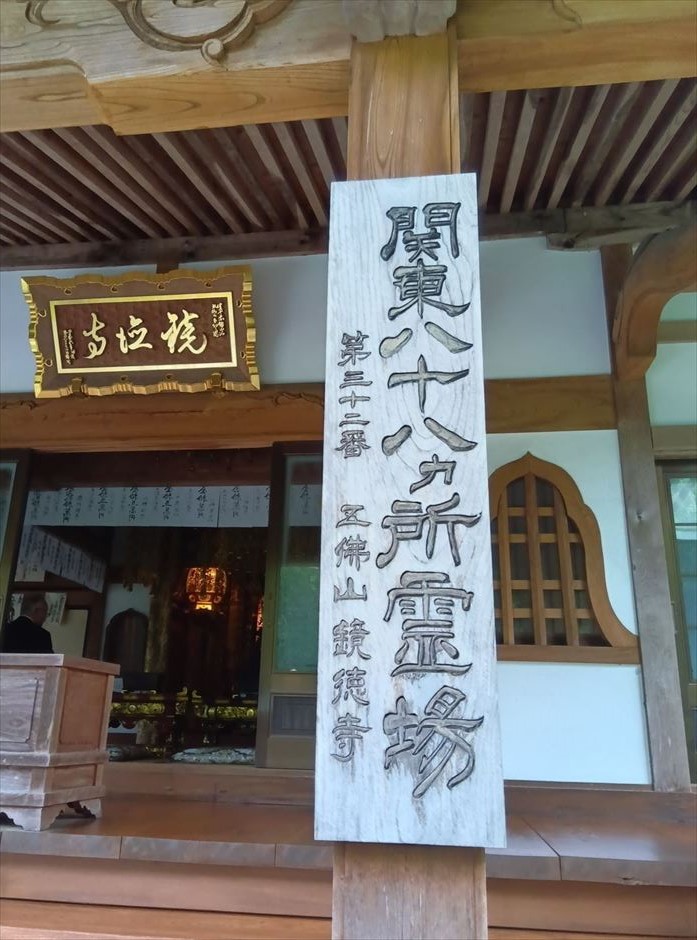 関東八十八ヵ所霊場
第三十二番 五佛山鏡徳寺
鏡徳寺